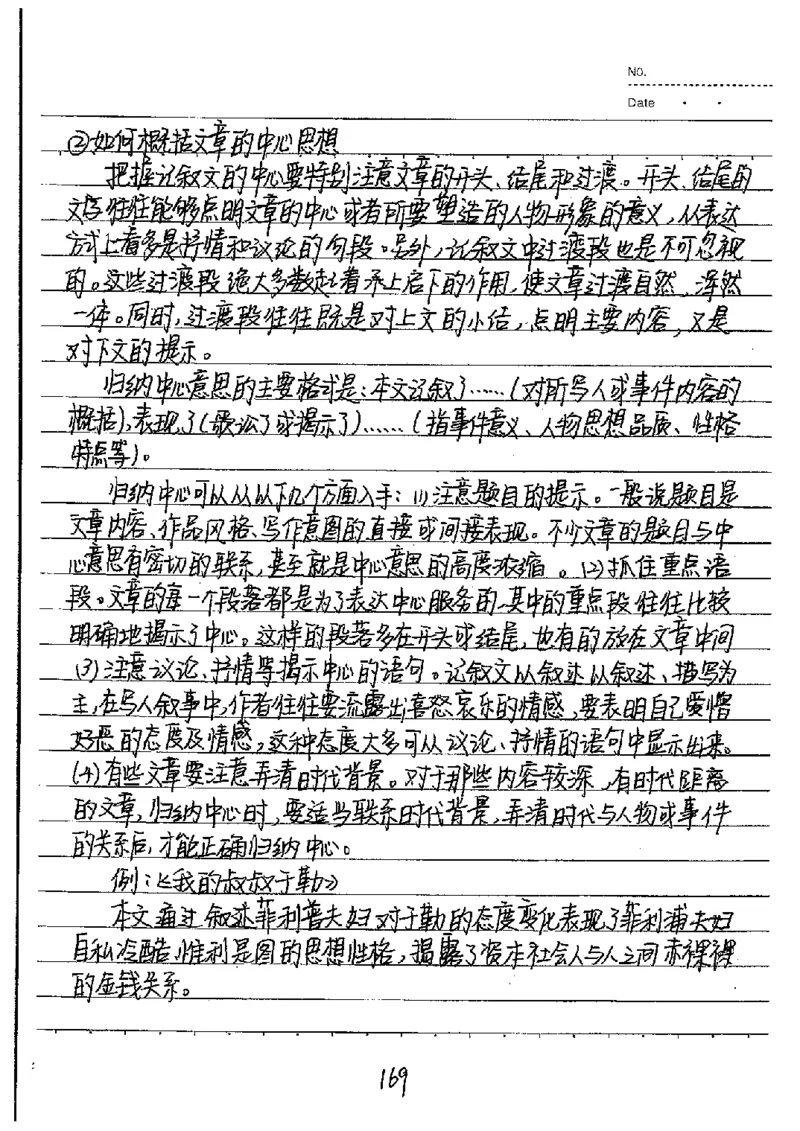 No.
Date
②如何概括文章的中心思想
把握记叙文的中心要特别注意文章的开头、结尾和过渡。开头、结尾的
文字往往能够点明文章的中心或者所要塑造的人物形象的意义,从表达
方式上看多是抒情和议论的句段。另外,记叙文中过渡段也是不可忽视
的。这些过渡段绝大多数起着承上启下的作用,使文章过渡自然、浑然
一体。同时,过渡段往往既是对上文的小结,点明主要内容,又是
对下文的提示。
归纳中心意思的主要格式是:本文记叙了……(对所写人或事件内容的
概括),表现了(歌讼了或揭示了)……(指事件意义、人物思想品质、性格
特点等)。
归纳中心可以从从以下几个方面入手:(1)注意题目的提示。一般说题目是
文章内容、作品风格、写作意图的直接或间接表现。不少文章的题目与中
心意思有密切的联系,甚至就是中心意思的高度浓缩。(2)抓住重点语
段。文章的每一个段落都是为了表达中心服务的,其中的重点段往往比较
明确地揭示了中心。这样的段落多在开头或结尾,也有的放在文章中间
(3)注意议论、抒情等揭示中心的语句。记叙文以叙述从叙述、描写为
主,在写人叙事中,作者往往要流露出喜怒哀乐的情感,要表明自己爱憎
好恶的态度及情感,这种态度大多可从议论、抒情的语句中显示出来。
(4)有些文章要注意弄清时代背景。对于那些内容较深,有时代距离
的文章,归纳中心时,要适当联系时代背景,弄清时代与人物或事件
的关系后,才能正确归纳中心。
例:《我的叔叔于勒》
本文通过叙述菲利普夫妇对于勒的态度变化表现了菲利浦夫妇
自私冷酷,惟利是图的思想性格,揭露了资本社会人与人之间赤裸裸
的金钱关系。
169